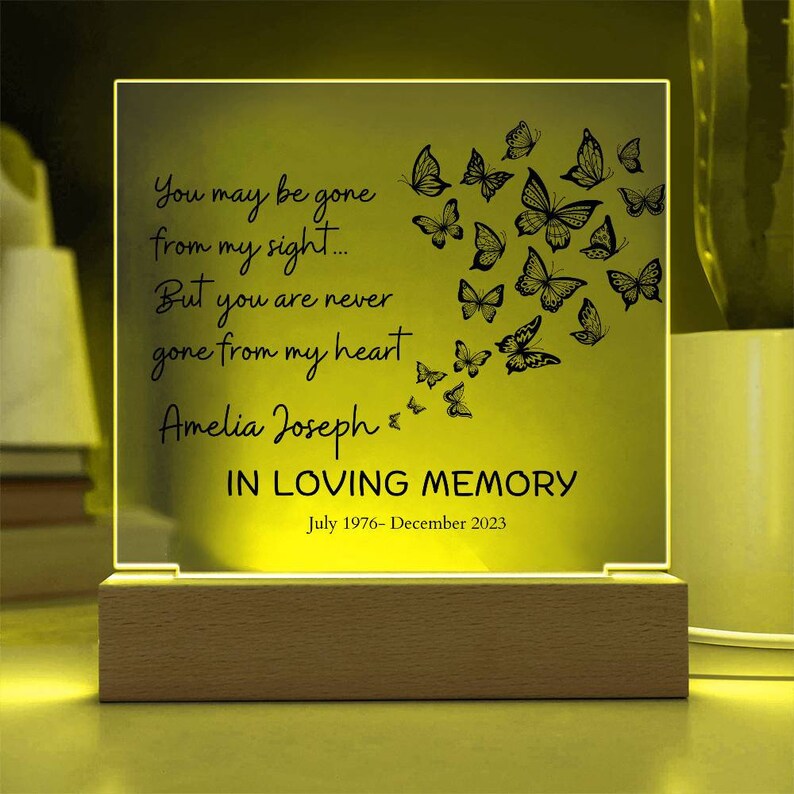 You may be gone
from my sight...
But you are never
gone from my heart
Amelia Joseph
IN LOVING MEMORY
July 1976- December 2023